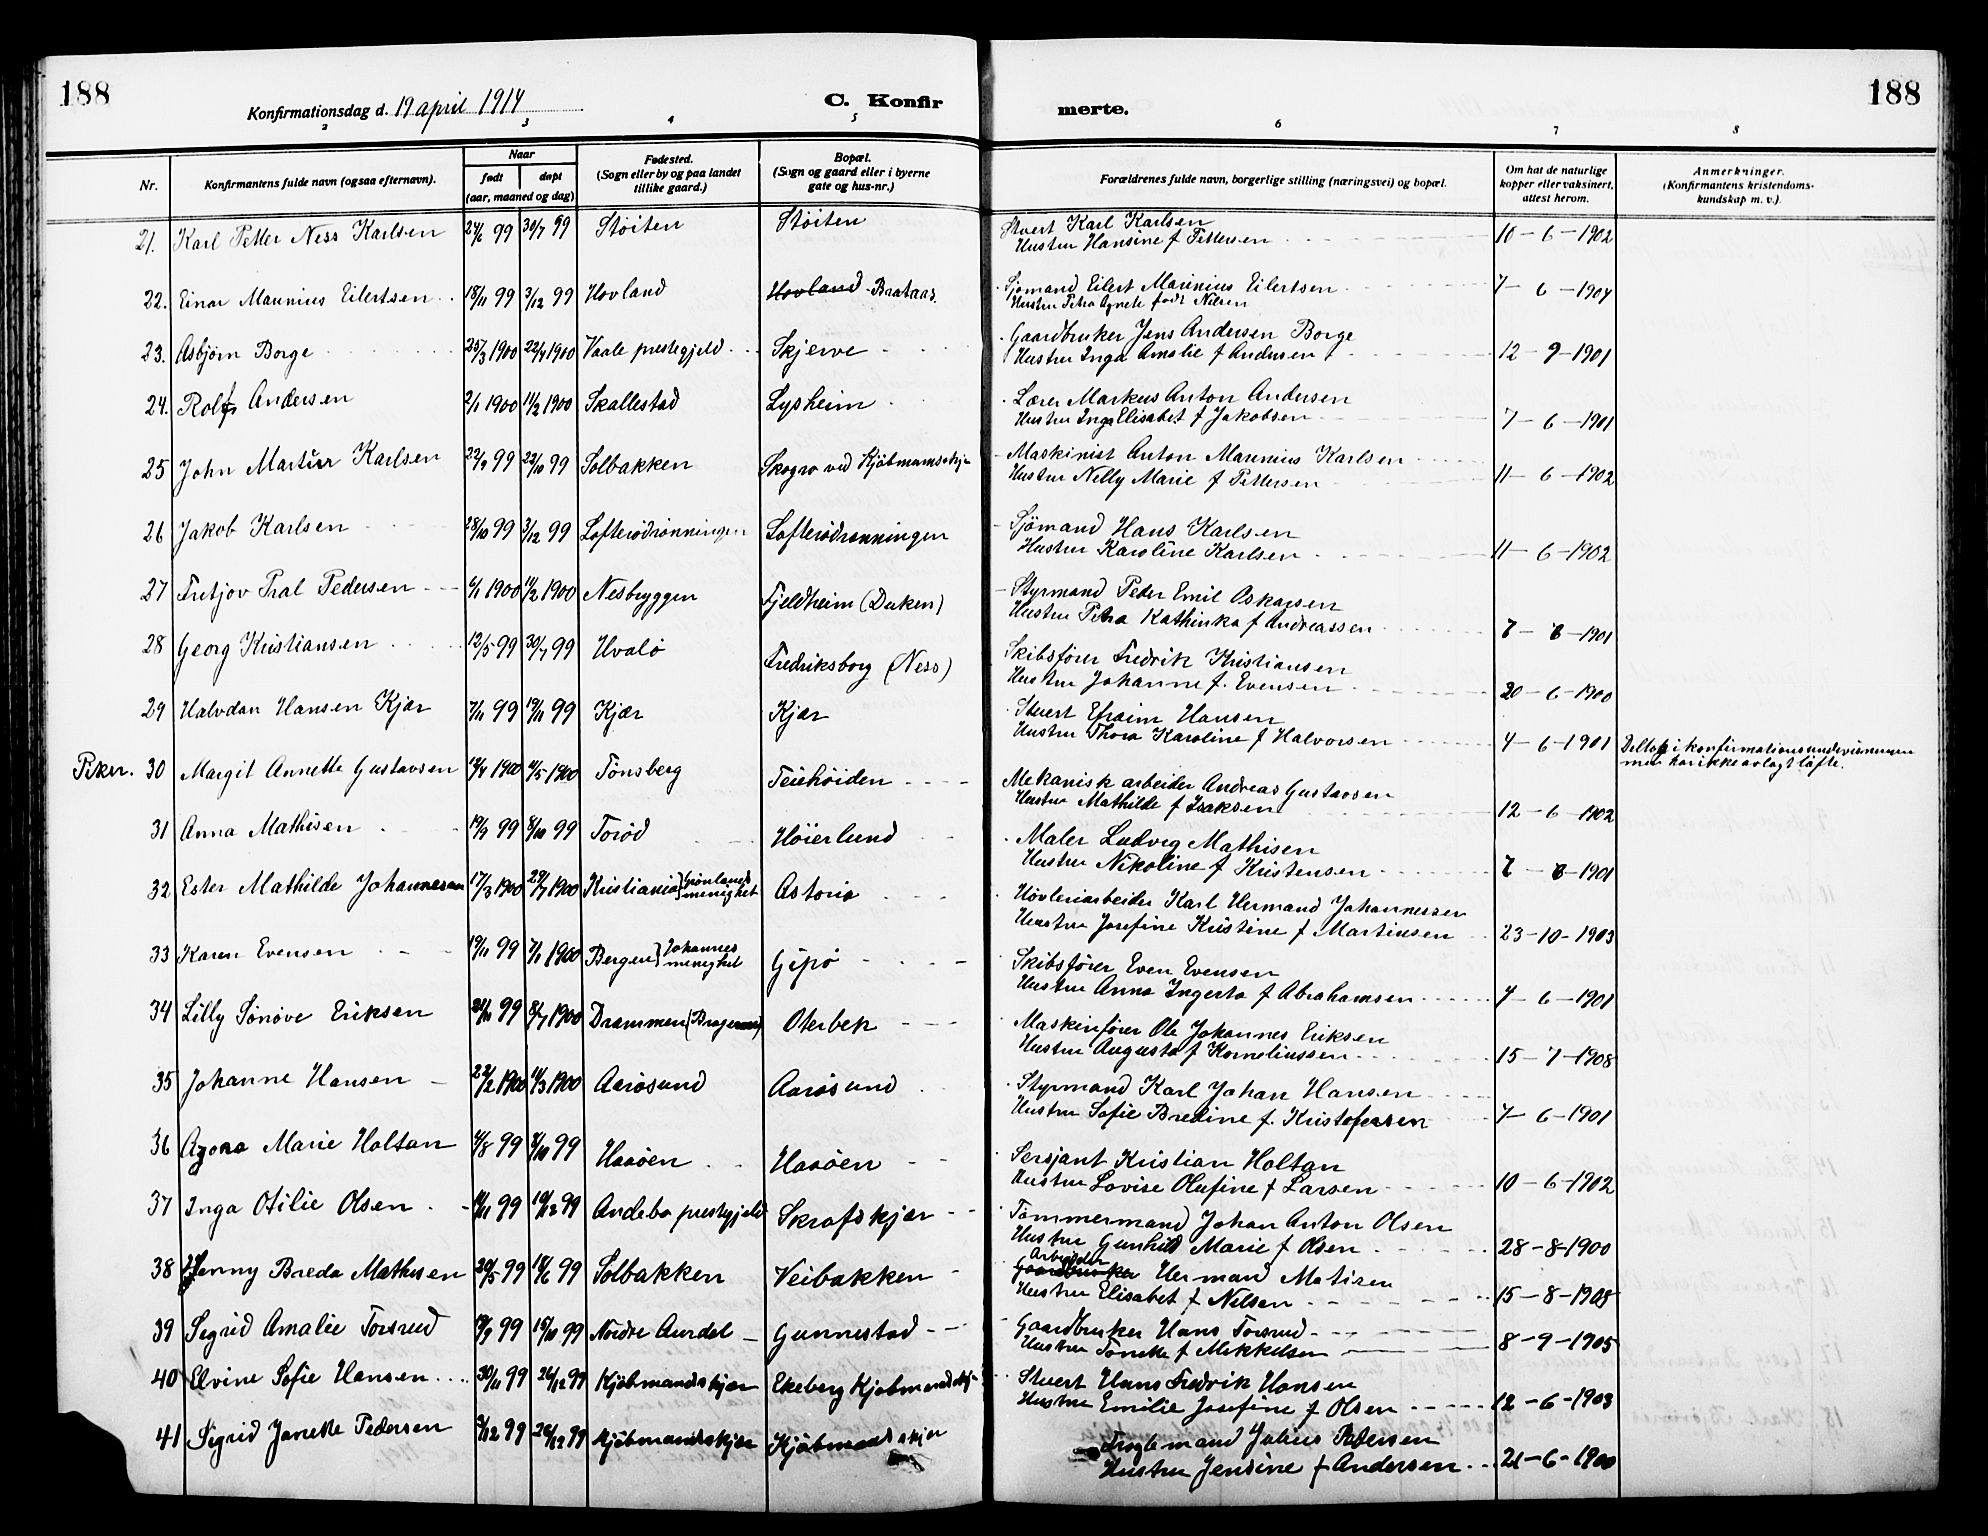 188
Konfirmationsdag d. 19 april 1914
C. Konfir
merte.
188
2 3 4 5 6 7 8
Nr.
Konfirmantens fulde navn (ogsaa efternavn).
Naar
født
døpt
(aar, maaned og dag)
Fødested.
(Sogn eller by og paa landet
tillike gaard.)
Bopæl.
(Sogn og gaard eller i byerne
gate og hus-nr.)
Forældrenes fulde navn, borgerlige stilling (næringsvei) og bopæl.
Om hat de naturlige
kopper eller vaksinert,
attest herom.
Anmerkninger.
(Konfirmantens kristendoms-
kundskap m. v.).
21. Karl Petter Ness Karlsen 24/6 99 30/7 99 Støiten Støiten Stuert Karl Karlsen 10-6-1902
Hustru Hansine f Pettersen
22. Einar Maurinius Eilertsen 18/11 99 3/12 99 Hovland Hovland Brataas. Sjømand Eilert Marinius Eilertsen 7-6-1904
Hustru Petra Agnete født Nilsen
23. Asbjørn Borge 25/3 1900 22/4 1900 Vaale prestegjeld Skjerve Gaardbruker Jens Andersen Borge
Hustru Inga Amalie f Andersen 12-9-1901
24. Rolf Andersen 2/1 1900 11/2 1900 Skallestad Lysheim Lærer Markus Anton Andersen
Hustru Inga Elisabet f Jakobsen 7-6-1901
25 John Martin Karlsen 22/9 99 22/10 99 Solbakken Skogro ved Kjøbmandskj- Maskinist Anton Marinius Karlsen
Hustru Nelly Marie f Pettersen 11-6-1902
26 Jakob Karlsen 28/10 99 3/12 99 Lofterødrønningen Lofterødrønningen Sjømand Hans Karlsen
Hustru Karoline Karlsen 11-6-1902
27 Fritjov Pedersen 6/1 1900 11/2 1900 Nesbryggen Fjeldheim (Duken) Styrmand Peder Emil Oskarsen
Hustru Petra Kathinka f Andreassen 7-6-1901
28 Georg Kristiansen 12/5 99 30/7 99 Hvalø Fredriksborg (Ness) Skibsfører Fredrik Kristiansen
Hustru Johanne f. Evensen 20-6-1900
29 Halvdan Hansen Kjær 7/11 99 19/11 99 Kjær Kjær Stuert Efraim Hansen
Hustru Thora Karoline f Halvorsen 4-6-1901
30 Margit Annette Gustavsen 1900 1900 Tønsberg Teiehøiden Mekanisk arbeider Andreas Gustavsen Deltok i konfirmationsundervisningen
Hustru Mathilde f Isaksen 12-6-1902 men har ikke avlagt løfte.
31 Anna Mathisen 19/9 99 8/10 99 Torød Høierlund Maler Ludvig Mathisen
Hustru Nikoline f Kristensen 7-6-1901
32 Ester Mathilde Johannessen 17/3 1900 29/7 1900 Kristiania Grønlands menighet Astoria Høvleriarbeider Karl Hermand Johannessen
Hustru Josefine Kristine f Martinsen 23-10-1903
33 Karen Evensen 19/11 99 7/1 1900 Bergen Johannes menighet Gipø Skibsfører Even Evensen
Hustru Anna Ingerta f Abrahamsen 4-6-1901
34 Lilly Sønøve Eriksen 99 8/7 1900 Drammen (Bragernes) Oterbek Maskinfører Ole Johannes Eriksen
Hustru Augusta f Korneliussen 15-7-1908
35 Johanne Hansen 22/2 1900 11/3 1900 Aarøsund Aarøsund Styrmand Karl Johan Hansen
Hustru Sofie Bredine f. Kristofersen 7-6-1901
36 Marie Holtan 4/8 99 8/10 99 Haaøen Haaøen Sersjant Kristian Holtan
Hustru Lovise Olufine f Larsen 10-6-1902
37 Inga Otilie Olsen 11/11 99 10/12 99 Andebo prestegjeld Skrafskjær Tømmermand Johan Anton Olsen
Hustru Gunhild Marie f Olsen 28-8-1900
38 Jenny Breda Mathisen 20/5 99 18/6 99 Solbakken Veibakken Arbeider Gaardbruker Herman Matisen
Hustru Elisabet f Nilsen 15-8-1908
39 Sigrid Amalie Torsrud 99 15/10 99 Nordre Aurdal Gunnestad Gaardbruker Hans Torsrud
Hustru Tonette f Mikkelsen 8-9-1905
40 Elvine Sofie Hansen 30/11 99 26/12 99 Kjøbmandskjær Ekeberg Kjøbmandskj- Stuert Hans Fredrik Hansen
Hustru Emilie Josefine f Olsen 12-6-1903
41 Sigrid Janette Pedersen 3/12 99 26/12 99 Kjøbmandskjær Kjøbmandskjær Julius Pedersen
Hustru Jensine f Andersen 21-6-1900